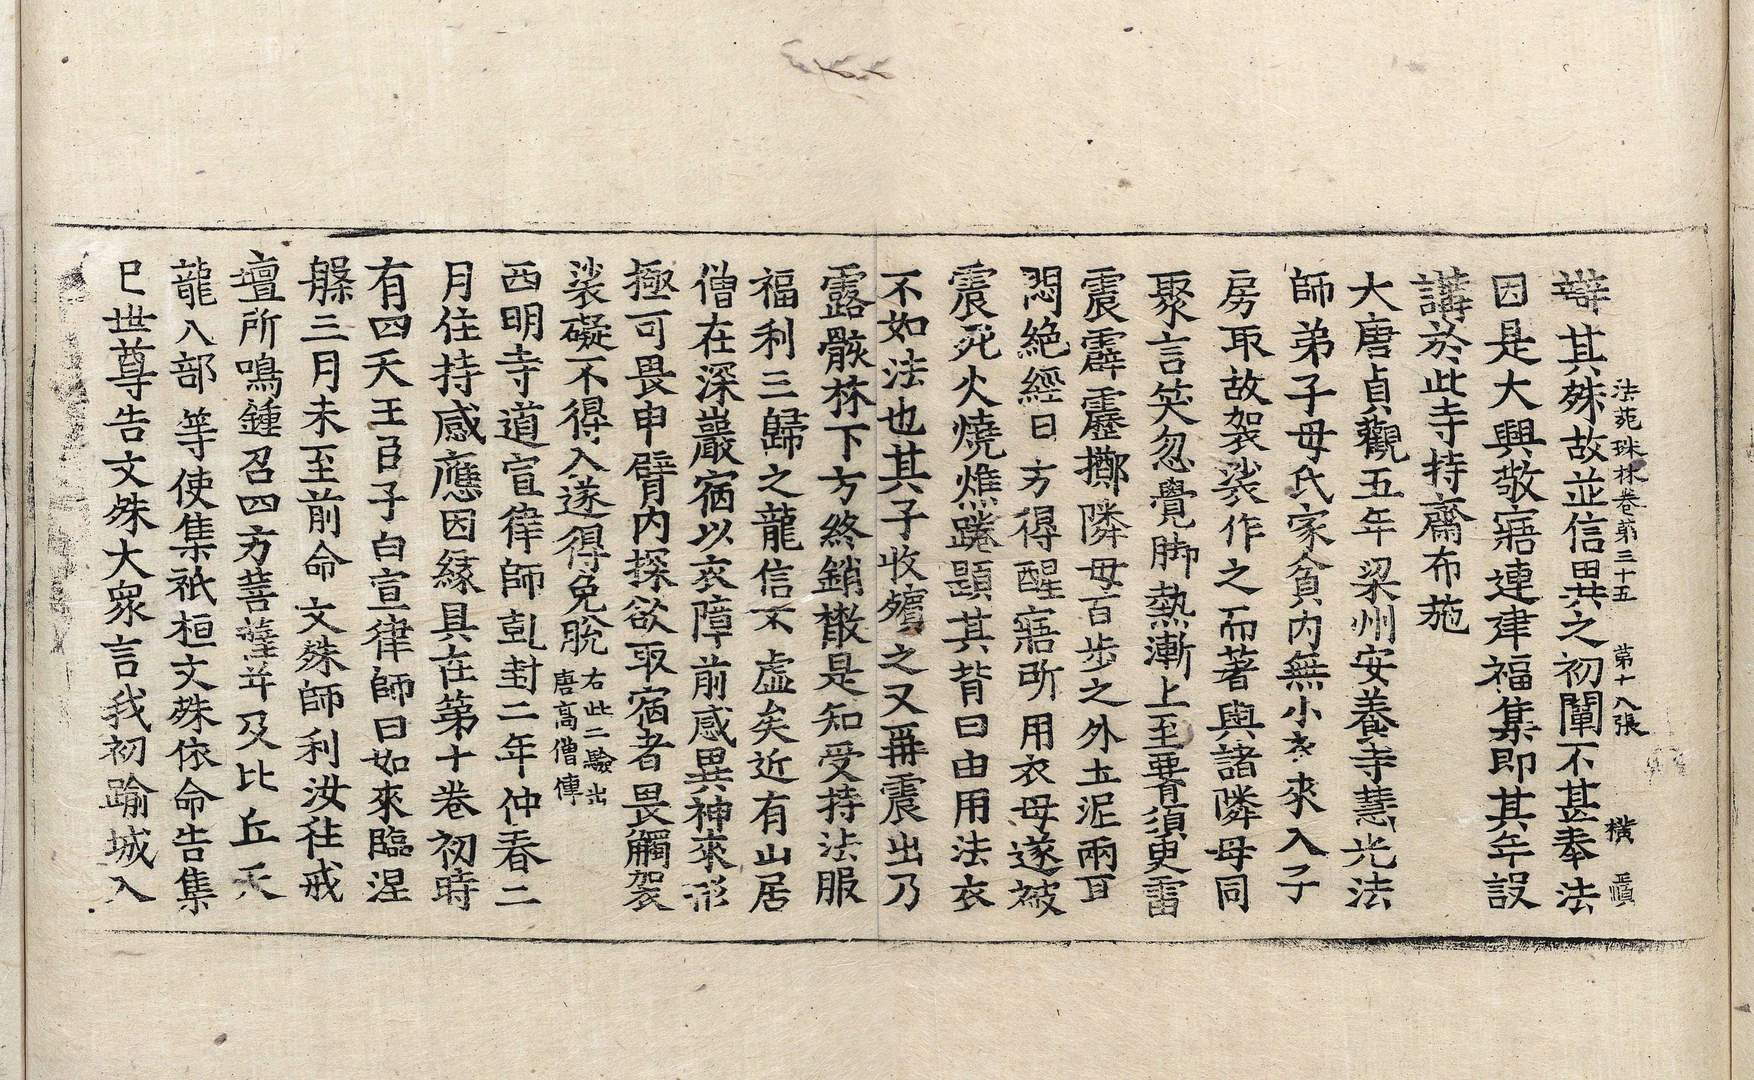 法苑珠林卷第三十五　第十八張　橫
辯其殊故並信異之初闡不甚奉法
因是大興敬寤連建福集即其年設
講於此寺持齋布施
大唐貞觀五年梁州安養寺慧光法
師弟子母氏家貧內無小衣來入子
房取故袈裟作之而著與諸隣母同
聚言笑忽覺脚熱漸上至䯗須更雷
震霹靂擲隣母百步之外土泥兩耳
悶絕經日方得醒寤所用衣母遂被
震死火燒燋踡題其背曰由用法衣
不如法也其子收殯之又再震出乃
露骸林下方終銷散是知受持法服
福利三歸之龍信不虛矣近有山居
僧在深巖宿以衣障前感異神來形
極可畏申臂內探欲取宿者畏觸袈
裟礙不得入遂得免脫右此二驗出唐高僧傳
西明寺道宣律師乹封二年仲春二
月住持感應因緣具在第十卷初時
有四天王臣子白宣律師曰如來臨涅
槃三月未至前命文殊師利汝往戒
壇所鳴鍾召四方菩薩并及比丘天
龍八部等使集祇桓文殊依命告集
已世尊告文殊大眾言我初踰城入